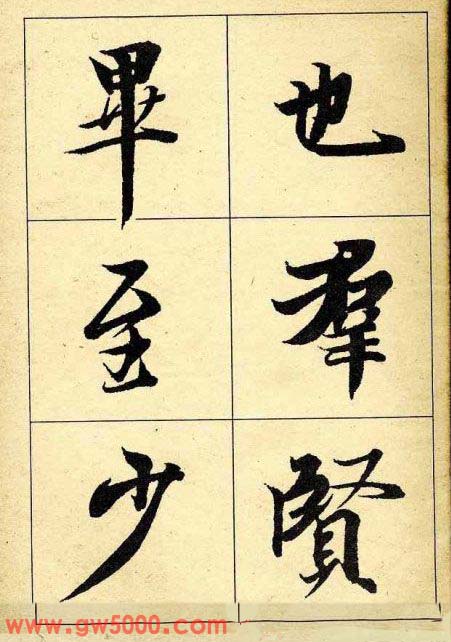 也羣賢
畢至少
www.gw5000.com